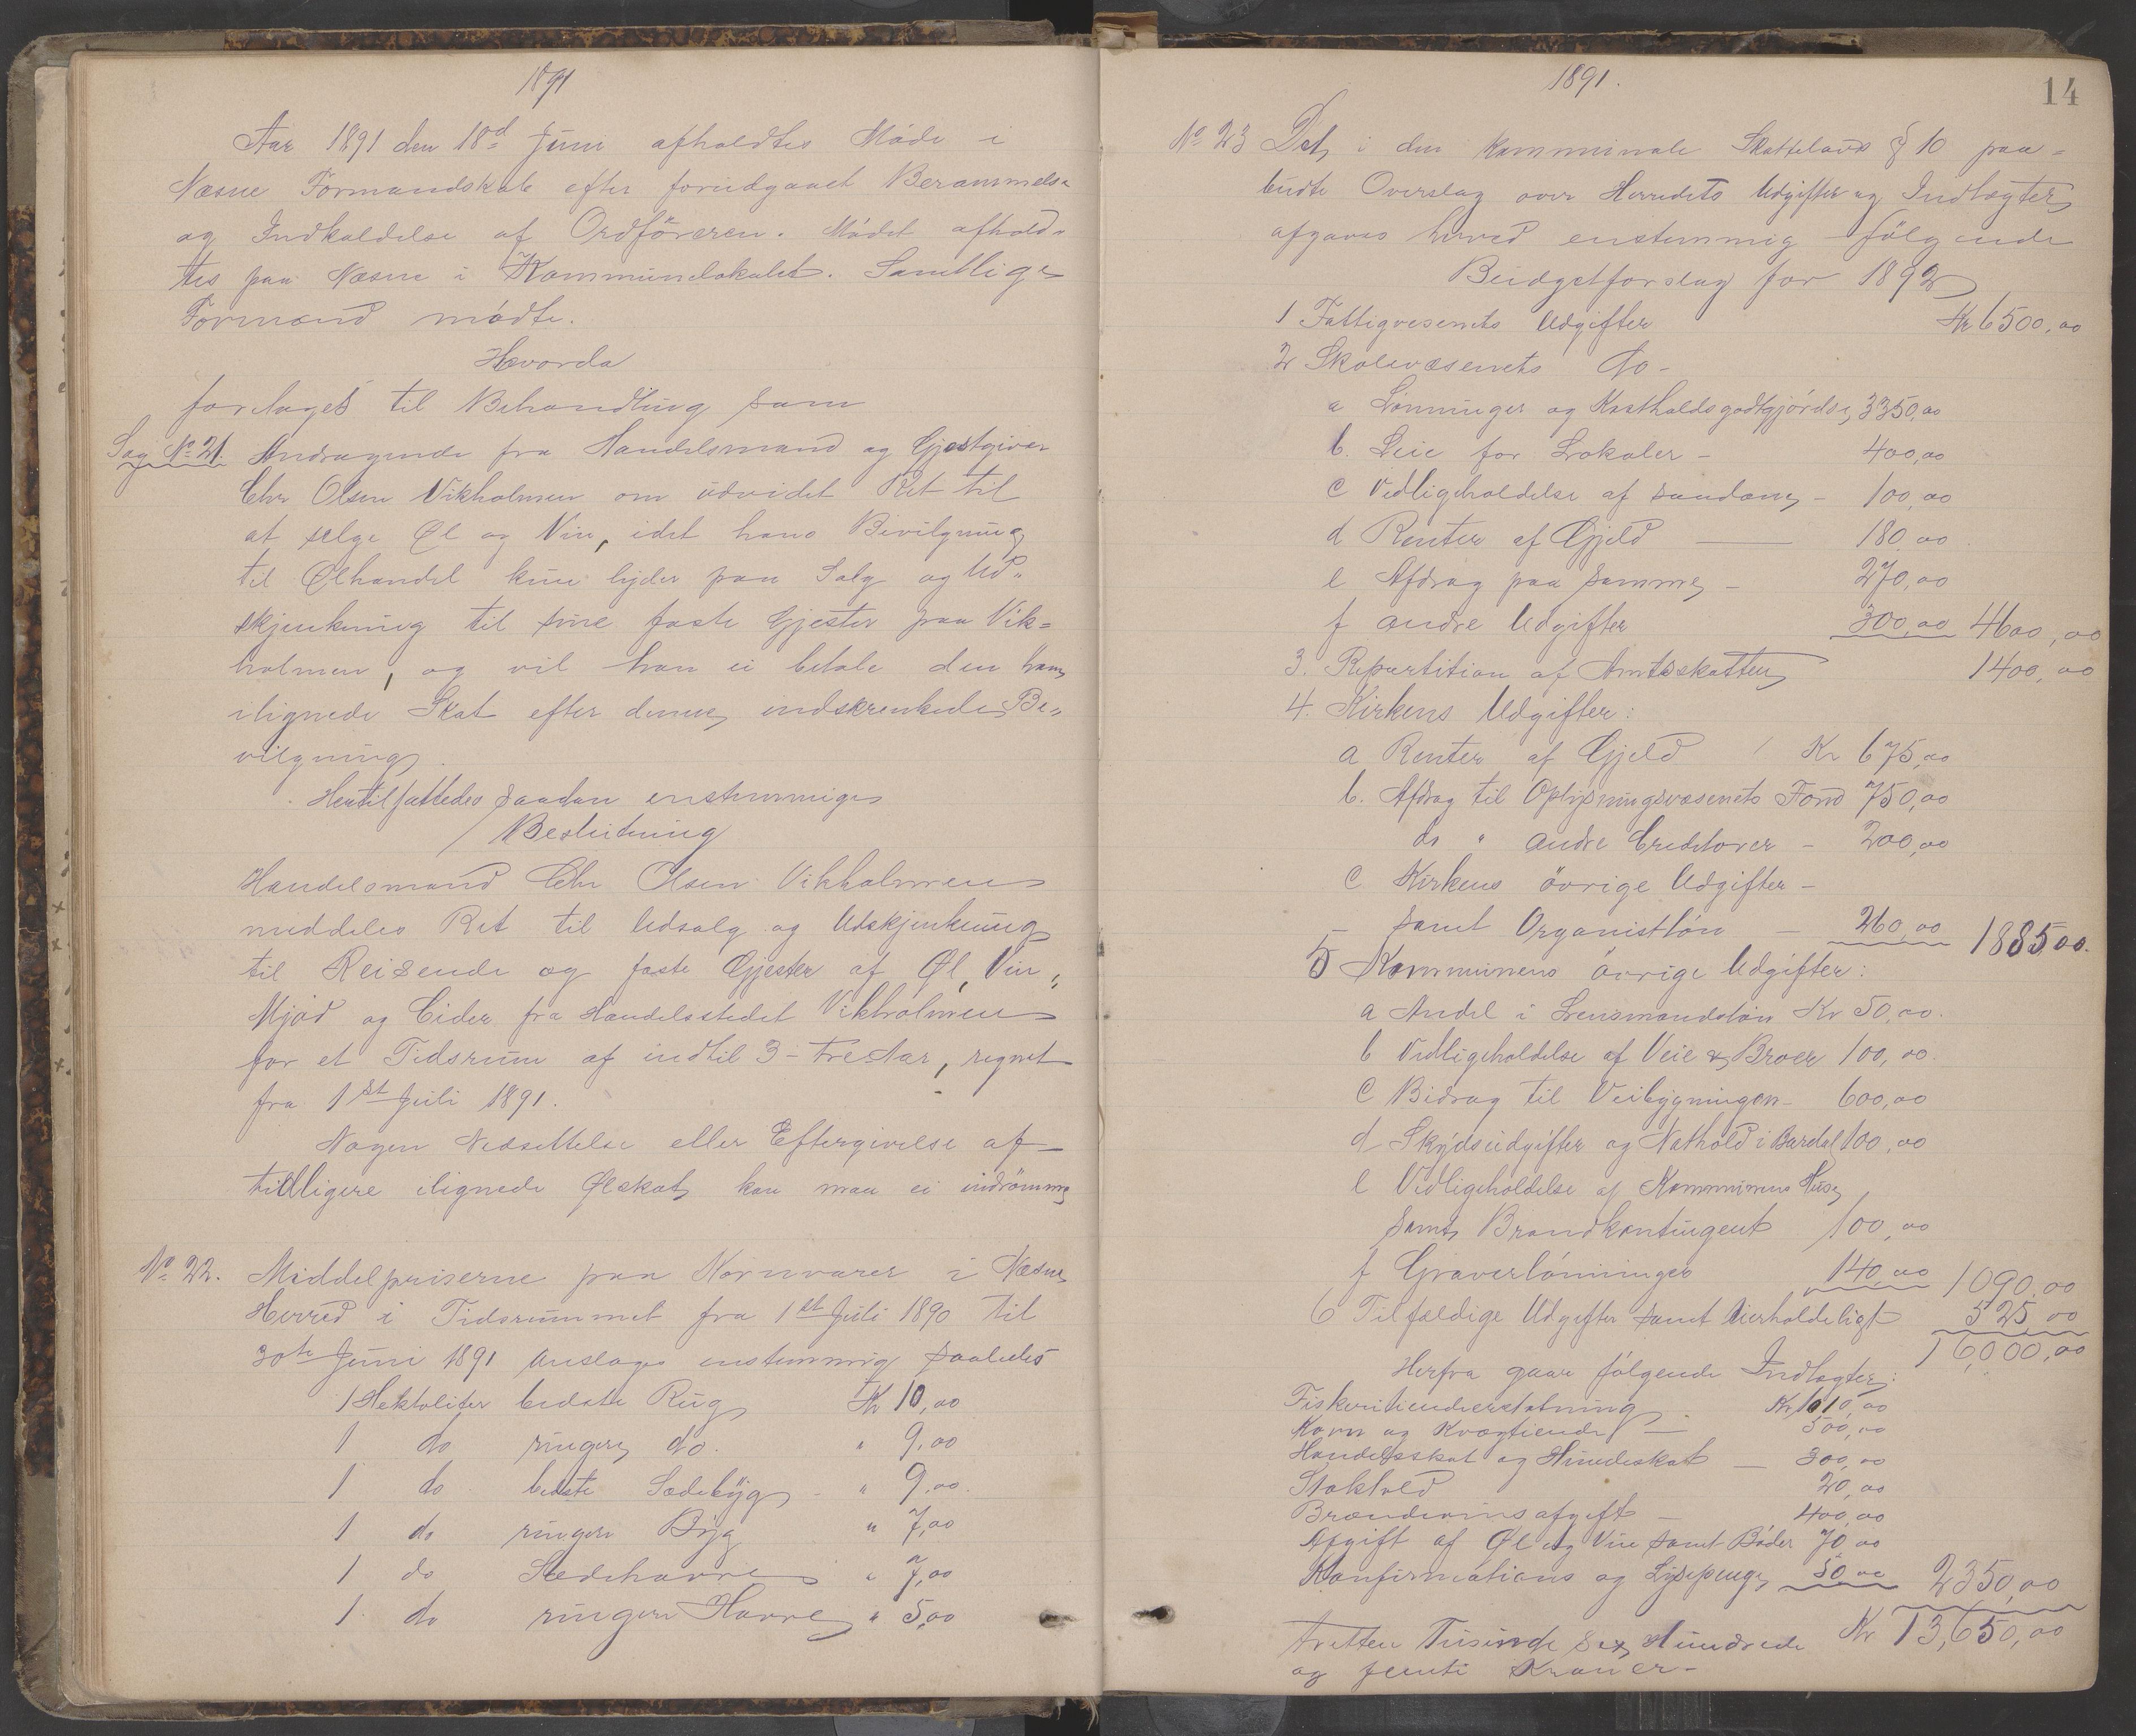 1891
Aar 1891 den 18d Juni afholdtes Møde i
Næsne Formandskab efter forudgaaet Berammelse
og Indkaldelse af Ordföreren. Mødet afhold-
tes paa Næsne i Kommunelokalet. Samtlige
Formænd mødte.
Hvorda
foretoges til Behandling som
Sag No 21. Andragende fra Handelsmand og Gjestgiver
Chr Olsen Vikholmen om udvidet Ret til
at selge Øl og Vin, idet hans Bevilgning
til Ølhandel kun lyder paa Salg og Ud-
skjenkning til sine faste Gjester paa Vik=
holmen, og vil han ei betale den ham
ilignede Skat efter denne indskrenkede Be-
vilgning.
Hertil fattedes saadan enstemmige
Beslutning
Handelsmand Chr Olsen Vikholmen
meddeles Ret til Udsalg og Udskjenkning
til Reisende og faste Gjester af Øl, Vin,
Mjød og Cider fra Handelsstedet Vikholmen
for et Tidsrum af indtil 3 - tre Aar, regnet
fra 1st Juli 1891.
Nogen Nedsettelse eller Eftergivelse af
tidligere ilignede Ølskat kan man ei indrömme
No 22. Middelpriserne paa Kornvarer i Næsne
Herred i Tidsrummet fra 1st Juli 1890 til
30te Juni 1891 ansloges enstemmig saaledes
1 Hektoliter bedste Rug Kr 10,00
1 do ringere do. " 9,00
1 do bedste Sædebÿg - " 9,00
1 do ringere Bÿg " 7,00
1 do Sædehavre " 7,00
1 do ringere Havre " 5,00
1891.
14
No 23 Det i den Kommunale Skattelovs § 10 paa-
budte Overslag over Herredets Udgifter og Indtægter
afgaves herved enstemmig følgende
Budgetforslag for 1892
1 Fattigvesenets Udgifter Kr 6500,00
2 Skolevæsenets do -
a Lønninger og Kostholdsgodtgjørelse 3350,00
b. Leie for Lokaler - 400,00
c Vedligeholdelse af saadane - 100,00
d Renter af Gjeld 180,00
e Afdrag paa samme - 270,00
f andre Udgifter 300,00 4600,00
3. Repartition af Amtsskatten 1400,00
4. Kirkens Udgifter:
a Renter af Gjeld Kr 675,00
b. Afdrag til Oplysningsvæsenets Fond 750,00
do " andre Creditorer - 200,00
c Kirkens övrige Udgifter -
samt Organistløn - 260,00 1885,00.
5 Kommunens övrige Udgifter:
a Andel i Lensmandsløn Kr 50,00.
b Vedligeholdelse af Veie & Broer 100,00.
c Bidrag til Veibygningen - 600,00
d Skÿdsudgifter og Nathold i Bardal 100,00
e Vedligeholdelse af Kommunens Huse
samt Brandkontingent 100,00
f Graverlønninger 140,00 1090,00
6 Tilfældige Udgifter samt Uerholdeligt 525,00
16,000,00
Herfra gaar følgende Indtægter:
Fiskeritiendeerstatning - Kr 1010,00
Korn og Kvægtiende - 500,00
Handelsskat og Hundeskat - 300,00
Stoklved 20,00
Brændevinsafgift - 400,00
Afgift af Øl og Vin samt Bøder 70,00
Konfirmations og Lysepenge 50,00 2350,00
Kr 13,650,00
tretten Tusinde Sex Hundrede
og femti Kroner -